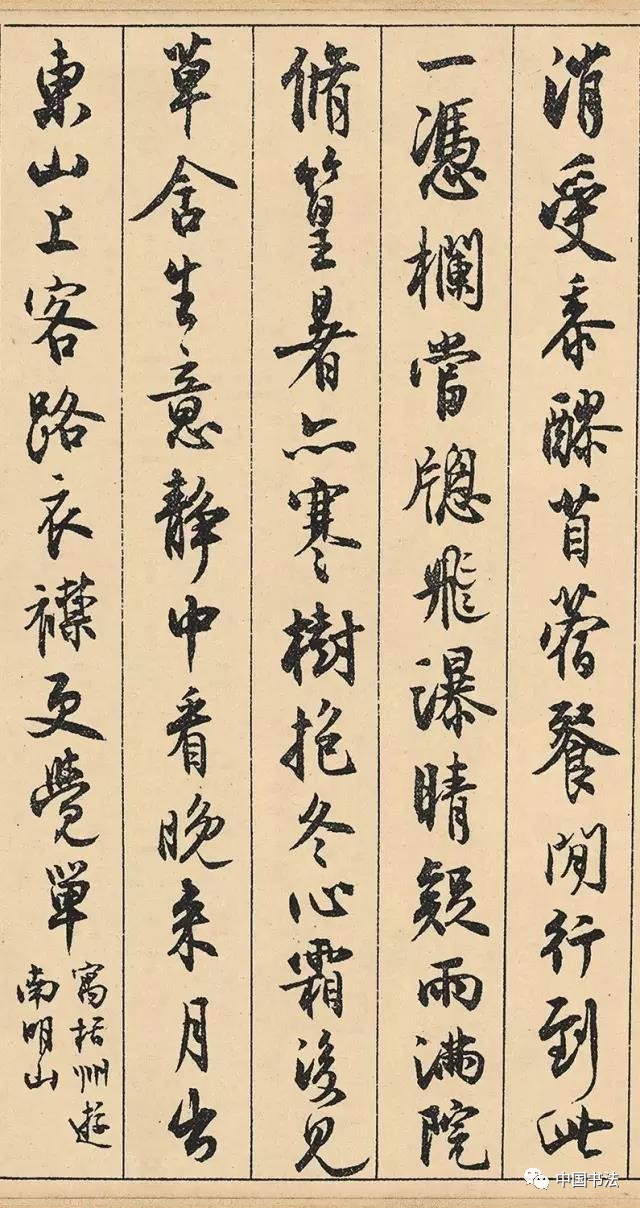 消受黍醪苜蓿餐閒行到此
一憑欄當牕飛瀑晴疑雨滿院
脩篁暑亦寒樹抱冬心霜後見
草含生意靜中看晚來月出
東山上客路衣襟更覺單
寓括州遊
南明山
中国书法